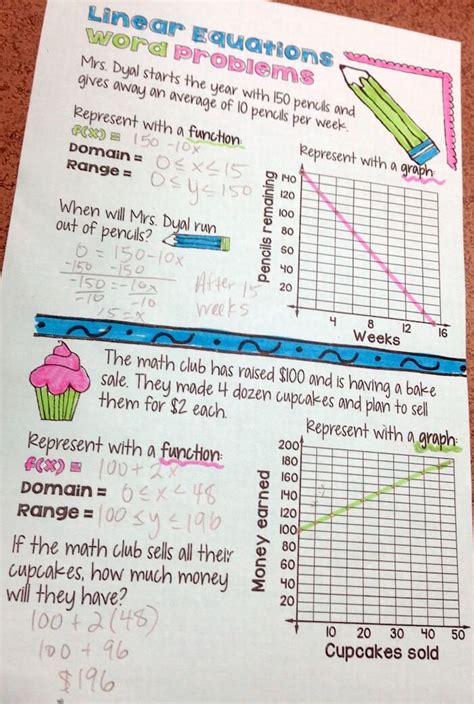 Linear Equations
Word Problems
Mrs. Dyal starts the year with 150 pencils and
gives away an average of 10 pencils per week.
Represent with a function:
f(x) = 150 - 10x
Domain = 0 ≤ x ≤ 15
Range = 0 ≤ y ≤ 150
When will Mrs. Dyal run
out of pencils?
0 = 150 - 10x
-150 -150
-150 = -10x
-10 -10
15 = x
After 15
weeks
Represent with a graph:
Pencils remaining
140
120
100
80
60
40
20
4 8 12 16
Weeks
The math club has raised $100 and is having a bake
sale. They made 4 dozen cupcakes and plan to sell
them for $2 each.
Represent with a function:
f(x) = 100 + 2x
Domain = 0 ≤ x ≤ 48
Range = 100 ≤ y ≤ 196
If the math club sells all their
cupcakes, how much money
will they have?
100 + 2(48)
100 + 96
$196
Represent with a graph:
Money earned
200
180
160
140
120
100
80
60
40
20
10 20 30 40 50
Cupcakes sold